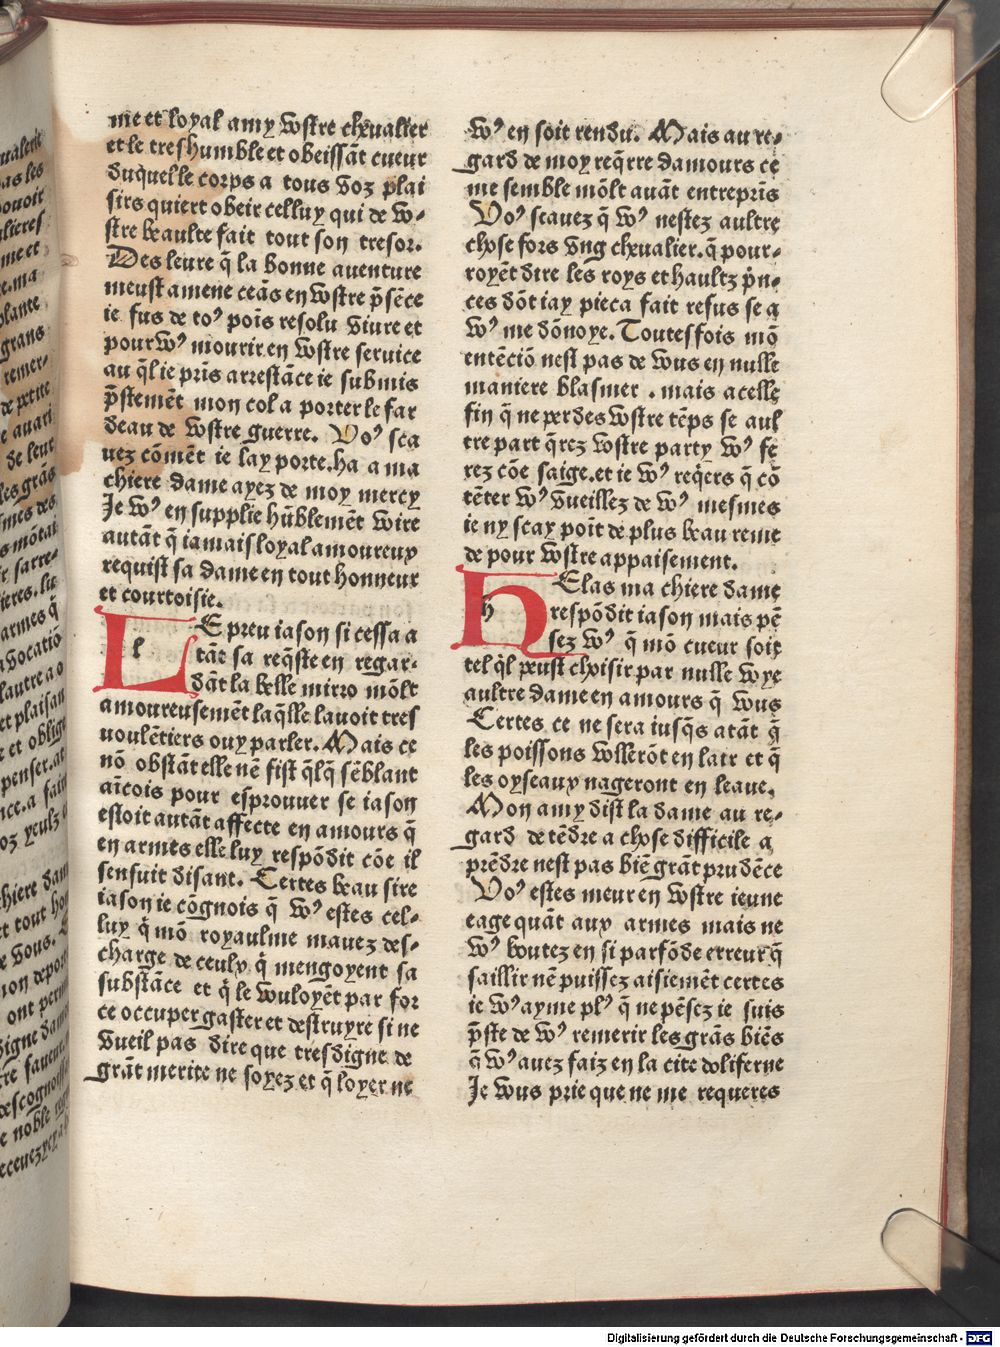 me et loyal amy vostre cheualier
et le treshumble et obeissāt cueur
duquel le corps a tous voz plai
sirs quiert obeir celluy qui de vo-
stre beaulte fait tout son tresor.
Des leure q̄ la bonne auenture
meust amene ceās en vostre p̄sēce
ie fus de toꝰ poīs resolu viure et
pour voꝰ mourir en vostre seruice
au q̄l ie prīs arrestāce ie submis
p̄stemēt mon col a porter le far
deau de vostre guerre. Voꝰ sca
uez cōmēt ie lay porte. ha a ma
chiere dame ayez de moy mercy
Je voꝰ en supplie hūblemēt voire
autāt q̄ iamais loyal amoureux
requist sa dame en tout honneur
et courtoisie.
LE preu iason si cessa a
tāt sa req̄ste en regar-
dāt la belle mirro mōlt
amoureusemēt laq̄lle lauoit tres
voulētiers ouy parler. Mais ce
nō obstāt elle nē fist q̄lq̄ sēblant
aīcois pour esprouuer se iason
estoit autāt affecte en amours q̄
en armes elle luy respōdit cōe il
sensuit disant. Certes beau sire
iason ie cōgnois q̄ voꝰ estes cel-
luy q̄ mō royaulme mauez des-
charge de ceulx q̄ mengoyent sa
substāce et q̄ le vouloyēt par for
ce occuper gaster et destruyre si ne
vueil pas dire que tresdigne de
grāt merite ne soyez et q̄ loyer ne
voꝰ en soit rendu. Mais au re-
gard de moy req̄rre damours ce
me semble mōlt auāt entreprīs
Voꝰ scauez q̄ voꝰ nestez aultre
chose fors vng cheualier. q̄ pour-
royēt dire les roys et haultz p̄n-
ces dōt iay pieca fait refus se a
voꝰ me dōnoye. Toutesfois mō
entēciō nest pas de vous en nulle
maniere blasmer . mais a celle
fin q̄ ne perdes vostre tēps se aul
tre part q̄rez vostre party voꝰ fe
rez cōe saige. et ie voꝰ req̄ers q̄ cō
tēter voꝰ vueillez de voꝰ mesmes
ie ny scay poīt de plus beau reme
de pour vostre appaisement.
HElas ma chiere dame
respōdit iason mais pē
sez voꝰ q̄ mō cueur soit
tel q̄l peust choisir par nulle voye
aultre dame en amours q̄ vous
Certes ce ne sera iusq̄s atāt q̄
les poissons vollerōt en lair et q̄
les oyseaux nageront en leaue.
Mon amy dist la dame au re-
gard de tēdre a chose difficile a
prēdre nest pas biē grāt prudēce
Voꝰ estes meur en vostre ieune
eage quāt aux armes mais ne
voꝰ boutez en si parfōde erreur q̄
saillir nē puissez aisiemēt certes
ie voꝰ ayme plꝰ q̄ ne pēsez ie suis
p̄ste de voꝰ remerir les grās biēs
q̄ voꝰ auez faiz en la cite doliferne
Je vous prie que ne me requeres
Digitalisierung gefördert durch die Deutsche Forschungsgemeinschaft - DFG